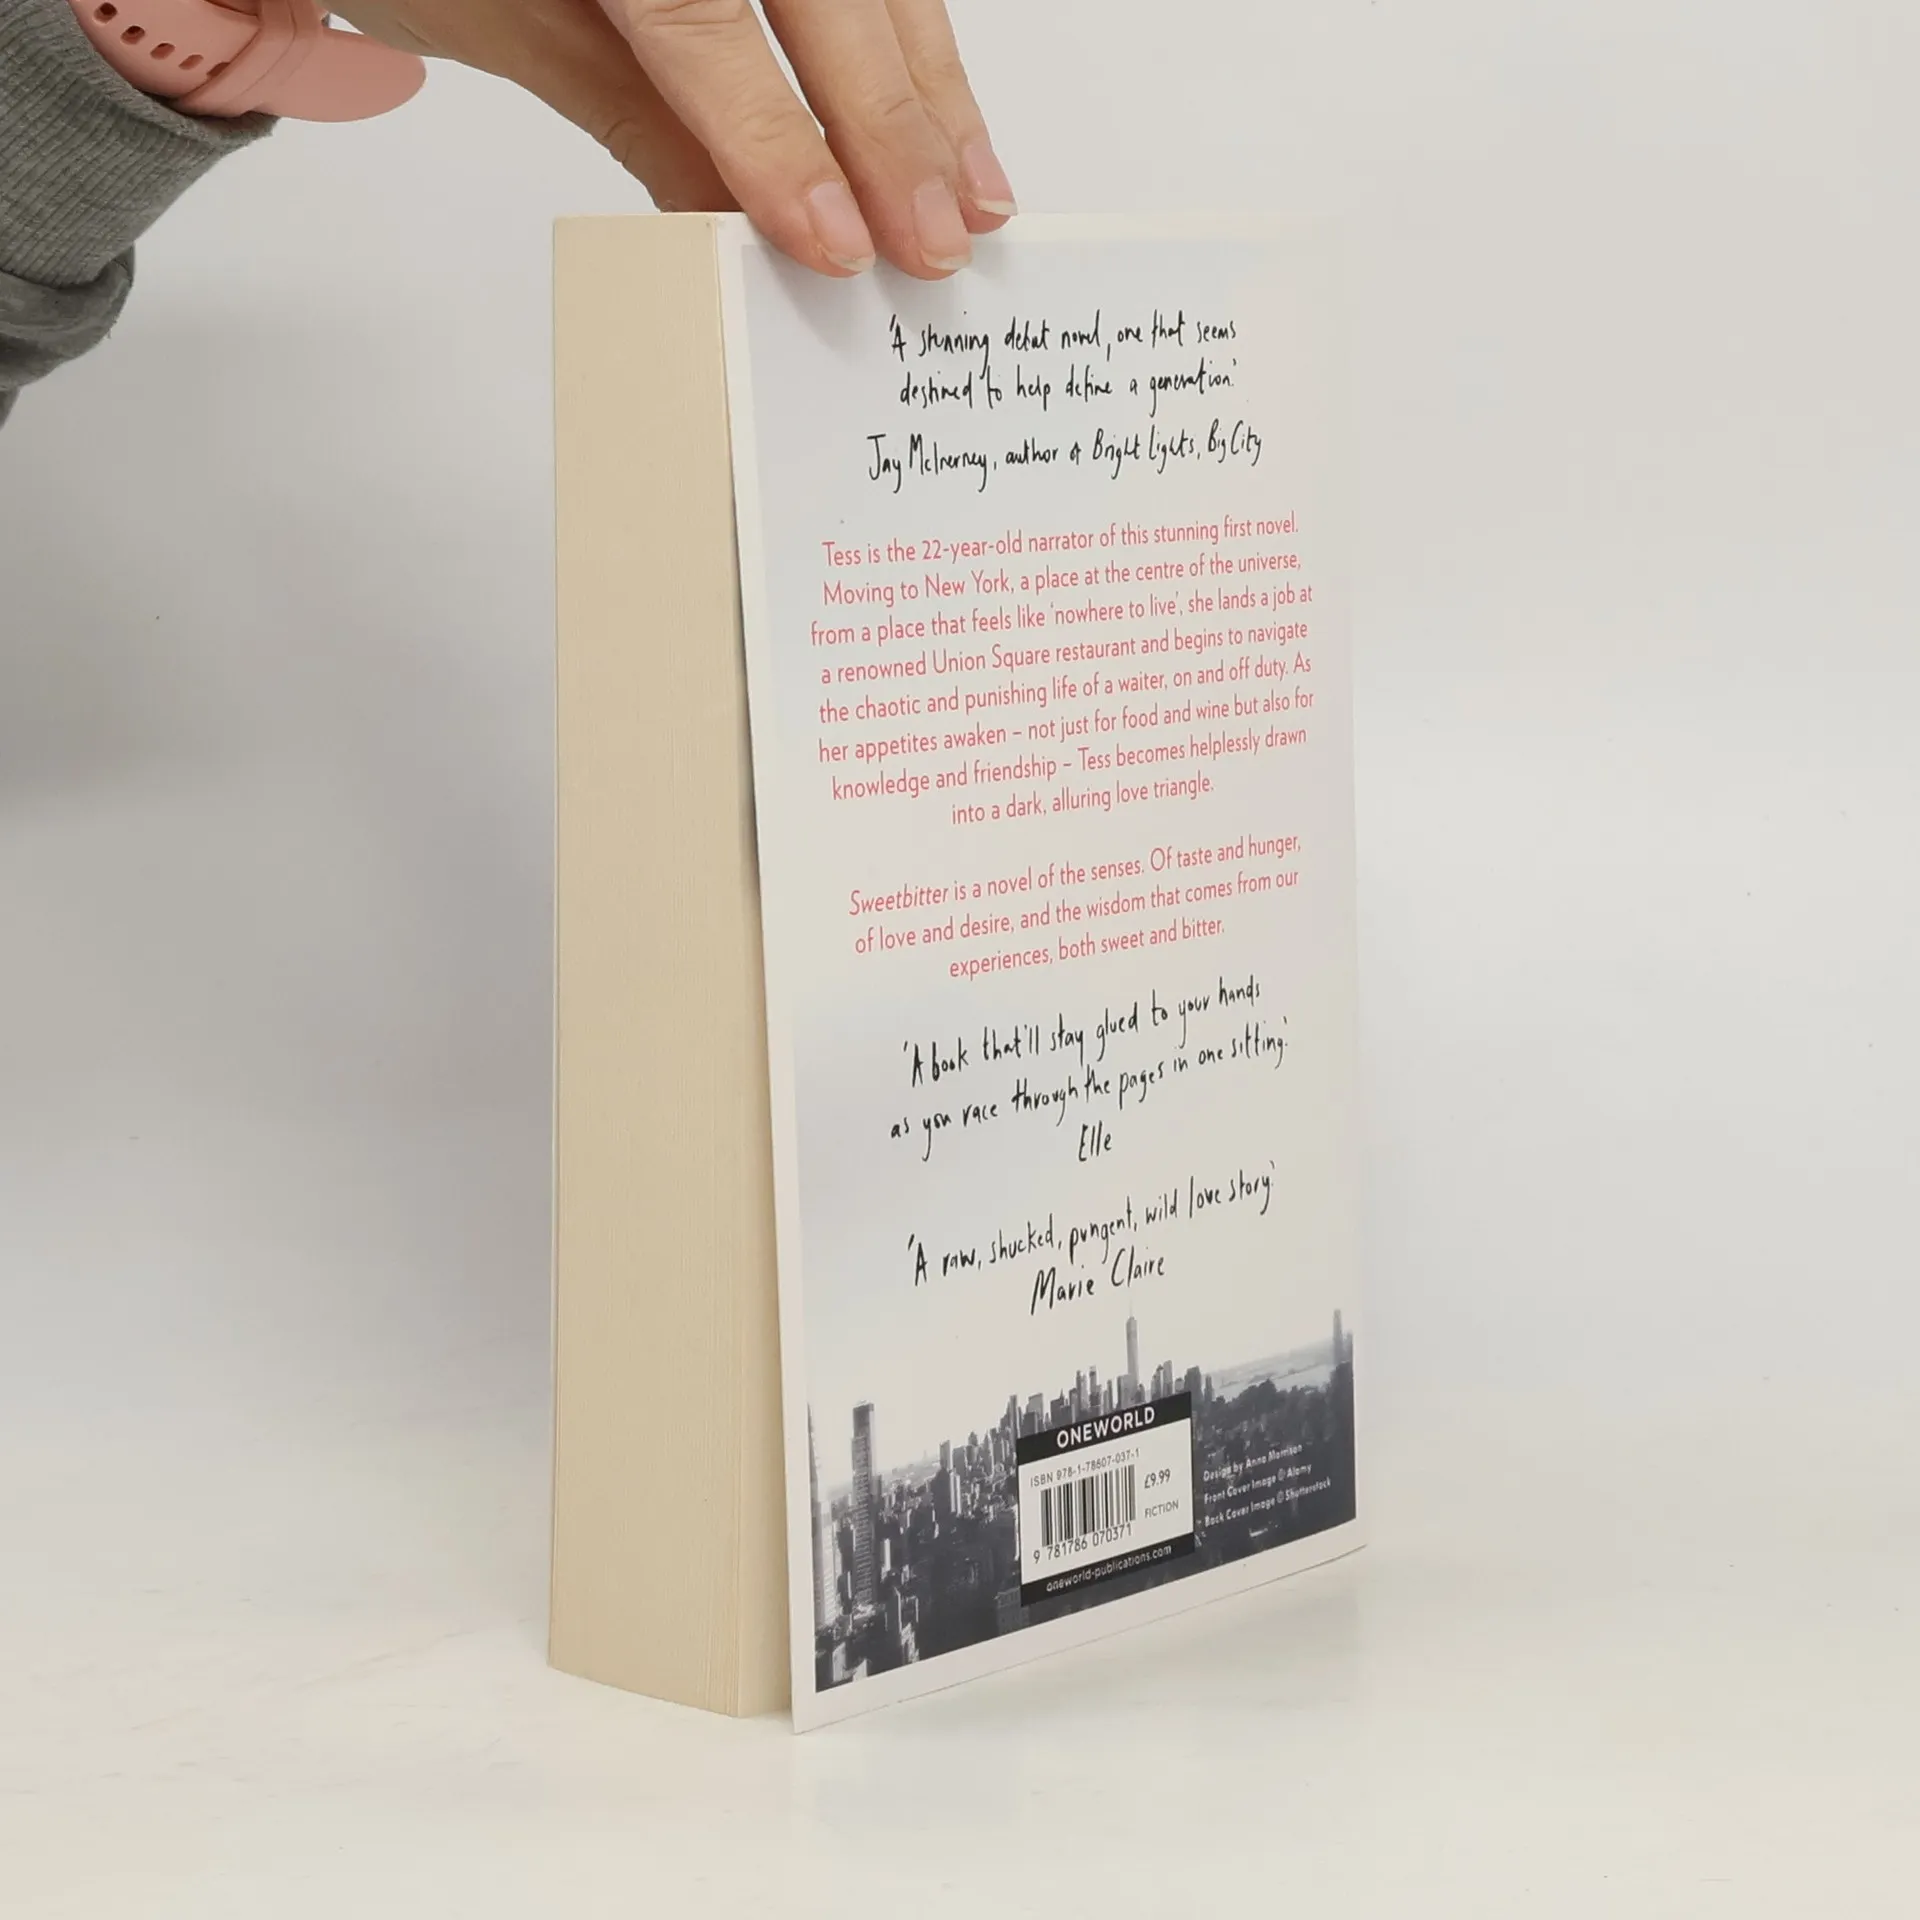 'A stunning debut novel, one that seems
destined to help define a generation.'
Jay McInerney, author of Bright Lights, Big City
Tess is the 22-year-old narrator of this stunning first novel.
Moving to New York, a place at the centre of the universe,
from a place that feels like 'nowhere to live', she lands a job at
a renowned Union Square restaurant and begins to navigate
the chaotic and punishing life of a waiter, on and off duty. As
her appetites awaken – not just for food and wine but also for
knowledge and friendship – Tess becomes helplessly drawn
into a dark, alluring love triangle.
Sweetbitter is a novel of the senses. Of taste and hunger,
of love and desire, and the wisdom that comes from our
experiences, both sweet and bitter.
'A book that'll stay glued to your hands
as you race through the pages in one sitting.'
Elle
'A raw, shucked, pungent, wild love story.'
Marie Claire
ONEWORLD
ISBN 978-1-78607-037-1
£9.99
FICTION
9 781786 070371
oneworld-publications.com
Design by Anna Morrison
Front Cover Image © Alamy
Back Cover Image © Shutterstock